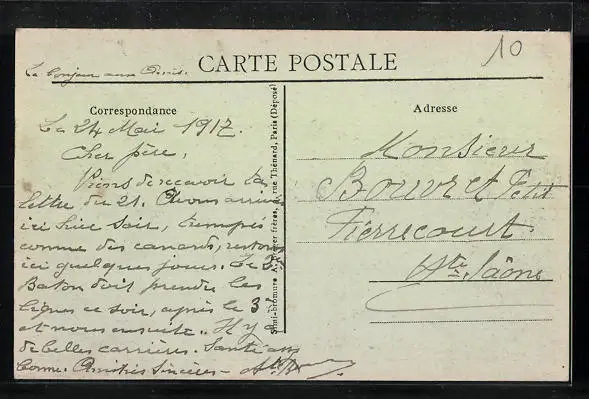 10
Le bonjour aux amis.
CARTE POSTALE
Correspondance
Adresse
Le 24 Mai 1917.
Cher père,
Viens de recevoir ta
lettre du 21. Avons
ici hier soir, trempés
comme des canards, restons
ici quelques jours. Le 3e
Baton doit prendre les
lignes ce soir, après le 3e
et nous ensuite. Il y a
de belles carrières. Santé
bonne. Amitiés sincères -
Monsieur
Bouvret Petit
Pierrecourt
Hte Saône
Simi-bromure A. frères, rue Thénard, Paris (Déposé)